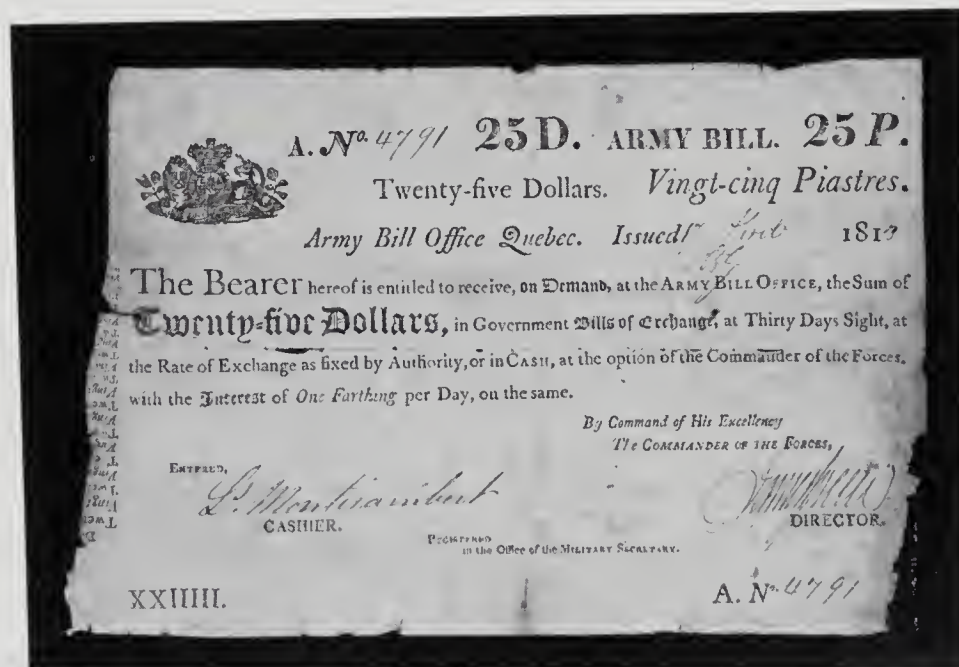 A. No. 4791 25 D. ARMY BILL. 25 P.
Twenty-five Dollars. Vingt-cinq Piastres.
Army Bill Office Quebec. Issued 181
The Bearer hereof is entitled to receive, on Demand, at the ARMY BILL OFFICE, the Sum of
Twenty-five Dollars, in Government Bills of Exchange, at Thirty Days Sight, at
the Rate of Exchange as fixed by Authority, or in CASH, at the option of the Commander of the Forces.
with the Interest of One Farthing per Day, on the same.
By Command of His Excellency
The COMMANDER OF THE FORCES,
ENTERED,
L. Montizambert
CASHIER.
DIRECTOR.
REGISTERED
in the Office of the MILITARY SECRETARY.
XXIIIII.
A. No. 4791